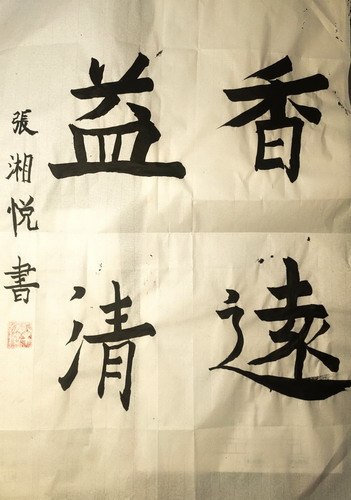 香遠
益清
張湘悦書